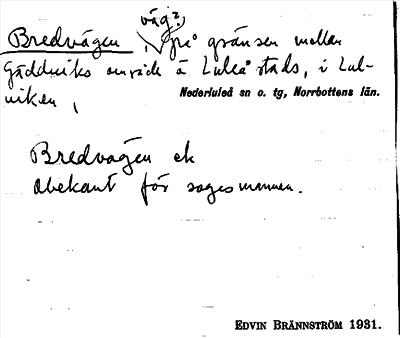 väg?,
Bredvägen, på gränsen mellan
Gäddviks område å Luleå stads, i Lul-
viken,
Nederluleå sn o. tg, Norrbottens län.
Bredvägen ek
obekant för sagesmannen.
EDVIN BRÄNNSTRÖM 1931.